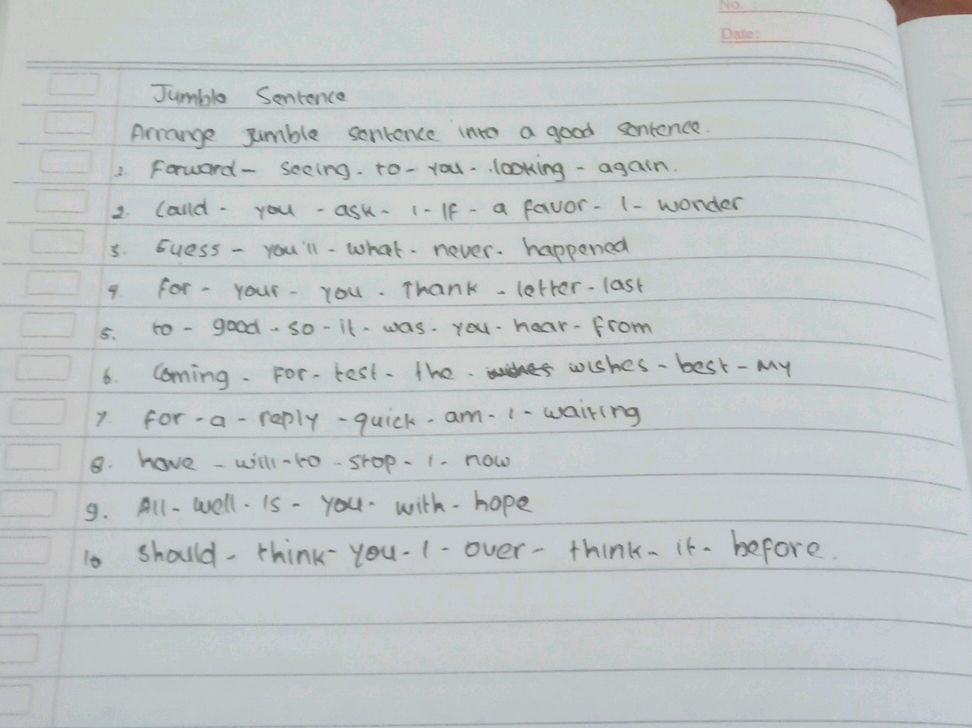 No. :
Date:
Jumble Sentence
Arrange jumble sentence into a good sentence.
1. Forward - seeing - to - you - looking - again.
2. Could - you - ask - I - If - a favor - I - wonder
3. Guess - you'll - what - never - happened
4. For - your - you - Thank - letter - last
5. to - good - so - it - was - you - hear - from
6. Coming - For - test - the - wishes - best - My
7. for - a - reply - quick - am - I - waiting
8. have - will - to - stop - I - now
9. All - well - Is - you - with - hope
10 should - think - you - I - over - think - it - before.